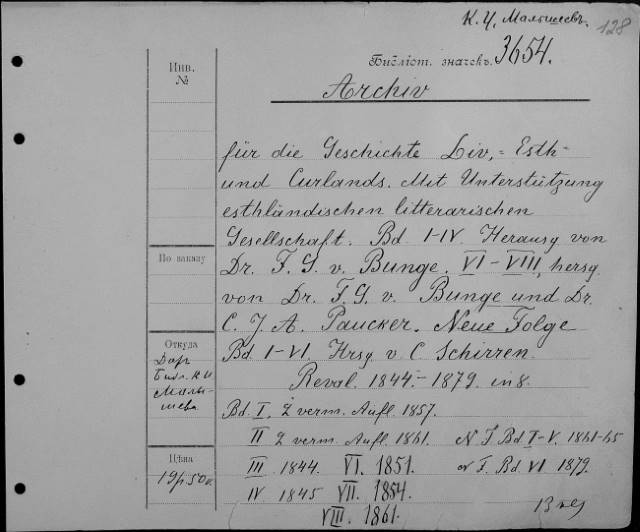 К. И. Малышевъ.
128
Библіот. значекъ. 3654.
Инв.
№
Archiv
für die Geschichte Liv,= Esth-
und Curlands. Mit Unterstützung
esthländischen litterarischen
Gesellschaft. Bd I-IV. Herausg von
По заказу
Dr. F. G. v. Bunge. VI-VIII, hersg.
von Dr. F. G. v. Bunge und Dr.
C. J. A. Paucker. Neue Folge
Откуда
Даръ
Библ. К. И.
Малы-
шева
Bd I-VI. Hrsg v. C Schirren.
Reval. 1844-1879. in 8.
Bd. I. 2 verm. Aufl. 1857.
II 2 verm. Aufl. 1861. N F Bd. I-V. 1861-65
Цѣна
19р 50к.
III 1844. VI. 1851. N F. Bd. VI 1879.
IV 1845 VII. 1854.
VIII 1861.